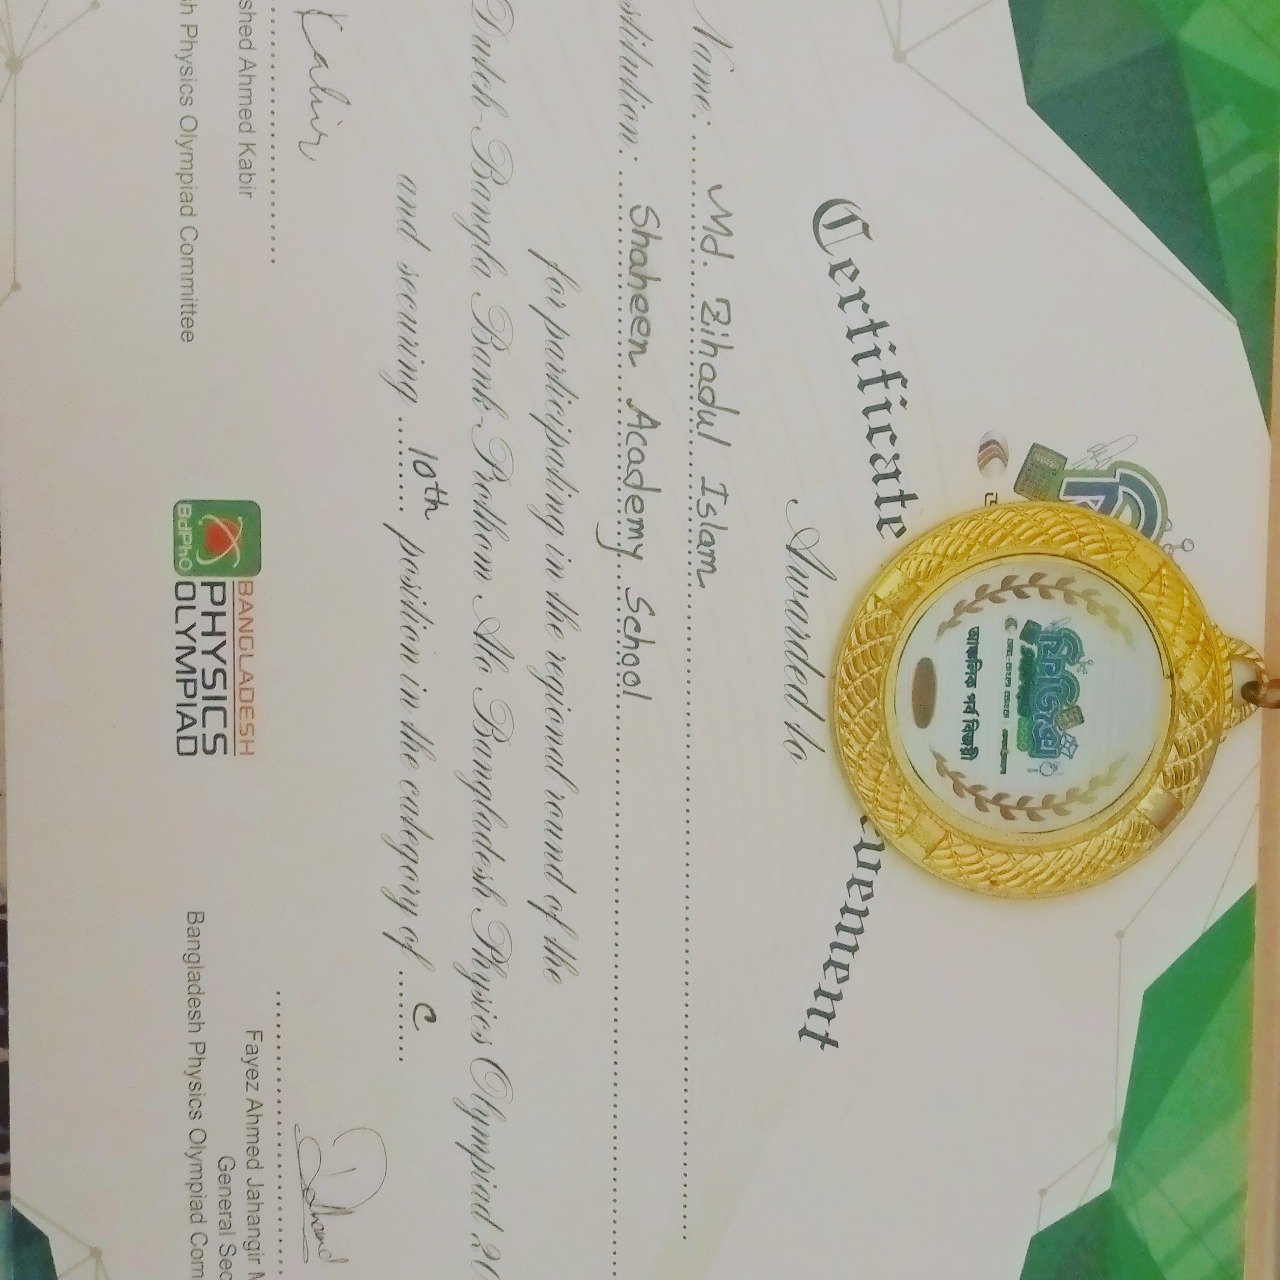 Certificate
Awarded to
Name: Md. Zihadul Islam
Shaheen Academy School
for participating in the regional round of the
Dutch-Bangla Bank-Prothom Alo Bangladesh Physics Olympiad
and securing 10th position in the category of C
Kabir
Ahmed Kabir
Physics Olympiad Committee
BdPhO
BANGLADESH
PHYSICS
OLYMPIAD
Fayez Ahmed Jahangir
General
Bangladesh Physics Olympiad
আঞ্চলিক পর্ব বিজয়ী